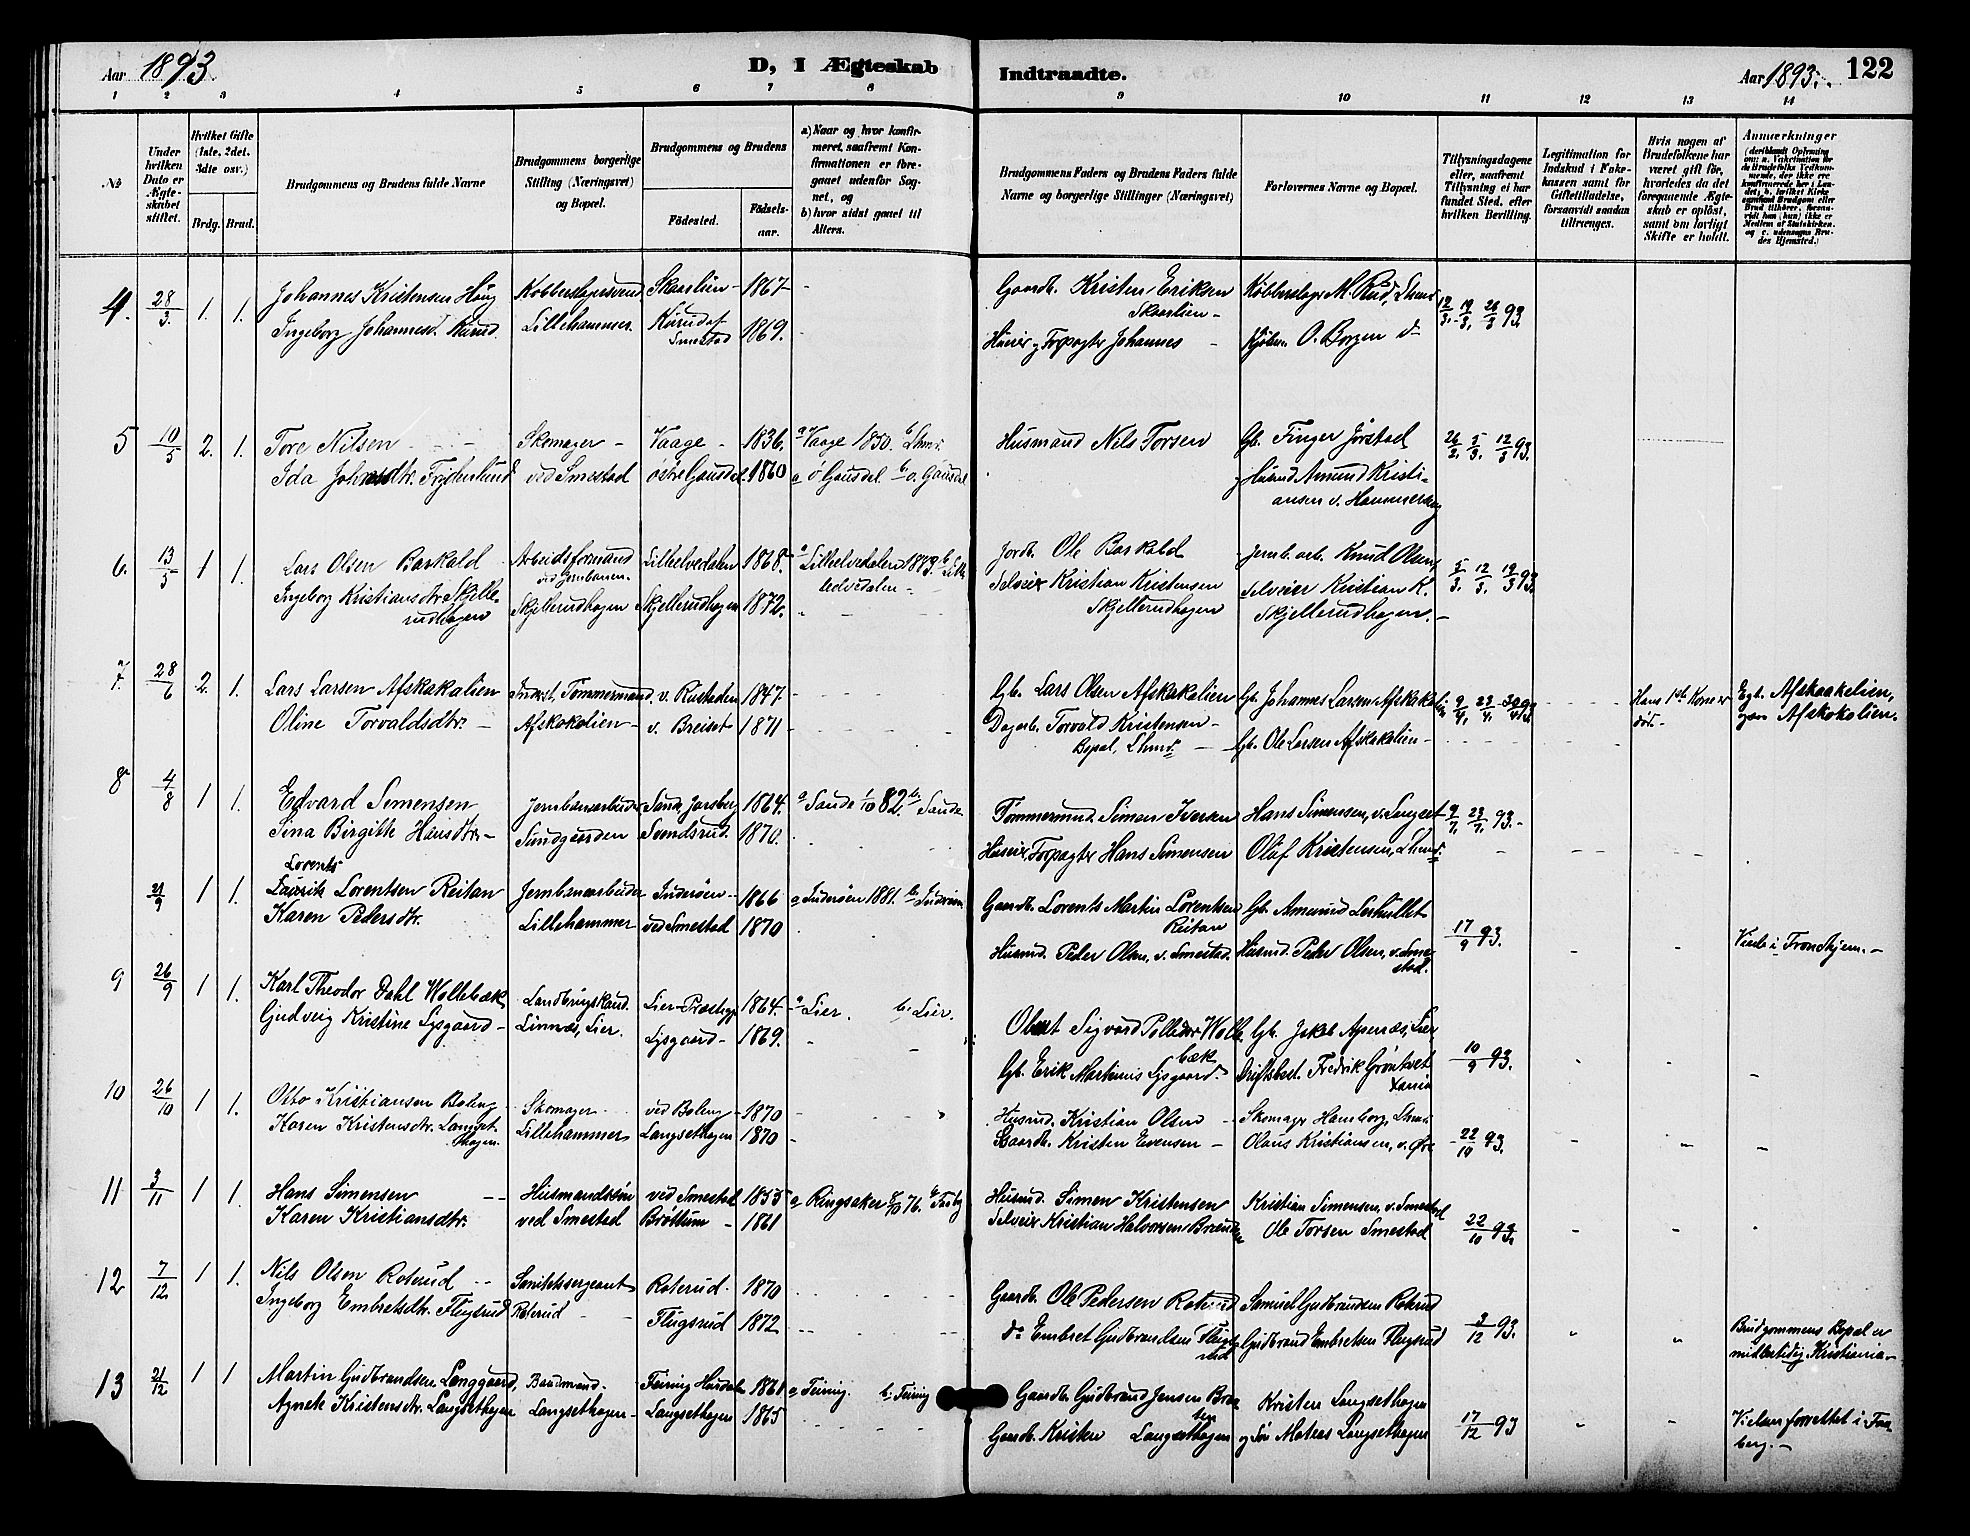 Aar 1893.
D, I Ægteskab Indtraadte.
Aar 1893. 122
1 2 3 4 5 6 7 8 9 10 11 12 13 14
No
Under hvilken Dato er Ægteskabet stiftet.
Hvilket Gifte (1ste, 2det, 3die osv.)
Brdg. Brud.
Brudgommens og Brudens fulde Navne
Brudgommens borgerlige Stilling (Næringsvei) og Bopæl.
Brudgommens og Brudens
Födested. Födselsaar.
a) Naar og hvor konfirmeret, saafremt Konfirmationen er foregaaet udenfor Sognet, og
b) hvor sidst gaaet til Alters.
Brudgommens Faders og Brudens Faders fulde Navne og borgerlige Stillinger (Næringsvei)
Forlovernes Navne og Bopæl.
Tillysningsdagene eller, saafremt Tillysning ei har fundet Sted, efter hvilken Bevilling.
Legitimation for Indskud i Enkekassen samt for Giftetilladelse, forsaavidt saadan tiltrænges.
Hvis nogen af Brudefolkene har været gift før, hvorledes da det foregaaende Ægteskab er oplöst, samt om lovligt Skifte er holdt.
Anmærkninger
4. 28/3. 1. 1. Johannes Kristensen Haug Kobberslagersvend Skaarlien 1867 - Gaardb. Kristen Eriksen Skaarlien - Kobberslager M. Rud, Lhmr 12/3. 19/3. 26/3 93.
Ingeborg Johannesd. Kurud. Lillehammer. Kurud af Smestad 1869. - Huseier og Forpagter Johannes - Kjøbm. O. Borgen do
5 10/5 2. 1. Tore Nilsen - Skomager - Vaage - 1836. a Vaage 1850. b Lhmr. Husmand Nils Torsen Gb. Finger Jørstad 26/2. 5/3. 12/3 93.
Ida Johnsdtr. Frydenlund ved Smestad østre Gausdal. 1860 a ø Gausdal b ø. Gausdal og Husmd Amund Kristiansen v. Hammeren
6. 13/5 1 1. Lars Olsen Barkald Arbeidsformand ved Jernbanen. Lilleelvedalen 1868. a Lilleelvedalen 1883. b Lille Elvedalen - Jordb. Ole Barkald Jernb. arb. Knud Olsen, 5/3. 12/3. 19/3 93.
Ingeborg Kristiansdtr Skjellerudhagen Skjellerudhagen Skjellerudhagen 1872. - Selveier Kristian Kristensen Skjellerudhagen Selveier Kristian K. Skjellerudhagen. -
7. 28/6 2. 1. Lars Larsen Afskakalien Inderst. Tømmermand v. Rustaden 1847. - Gb. Lars Olsen Afskakalien Gb. Johannes Larsen Afskakalien 9/4. 23/4. 30/4 93 Hans 1ste Kone er død. - Egtl. Afskaakelien, ogsaa Afskokolien.
Oline Torvaldsdtr. - Afskokolien - v. Breiset - 1871 - Dagarb. Torvald Kristensen - Bopæl, Lhmr. - Gb. Ole Larsen Afskakalien -
8 4/8 1 1. Edvard Simensen Jernbanearbeider Sande, Jarlsberg 1864. a Sande 1/10 82 b. Sande Tømmermd. Simen Iversen Hans Simensen, v. Lunget 9/7. 23/7. 93. -
Sina Birgitte Hansdtr. - Sundgaarden Svendsrud. 1870. Huseier, Forpagter Hans Simensen Olaf Kristensen, Lhmr.
21/9 1 1. Lorents
Laurits Lorentsen Reitan Jernbanearbeider Inderøen - 1866 a Inderøen 1881. b. Inderøen Gaardb. Lorents Martin Lorentsen Reitan Gb. Amund Leshullet 17/9 93. Viede i Trondhjem. -
Karen Pedersdtr. Lillehammer ved Smestad 1870 Husmd. Peder Olsen, v. Smestad. Husmd. Peder Olsen, v. Smestad.
9 26/9 1 1. Karl Theodor Dahl Wollebæk Landbrugskand. Lier Præstegj 1864. a Lier. b. Lier. Oberst Sigvard Wollebæk Gb. Jakob Apenæs, Lier, 10/9 93.
Gudveig Kristine Lysgaard - Linnæs, Lier. Lysgaard - 1869. Gb. Erik Martinus Lysgaard. Driftsbest. Fredrik Grøntvet
10 26/10 1 1. Otto Kristiansen Boleng Skomager ved Boleng 1870 Husmd. Kristian Olsen Skomager Hamborg, Lhmr. 22/10 93.
Karen Kristensdtr. Langsethagen. Lillehammer Langsethagen 1870 - Gaardb. Kristen Evensen - Olaus Kristiansen, v. Øre
11 3/11 1 1. Hans Simensen - - Husmandssøn ved Smestad 1855 a Ringsaker 8/10 76. b Faaberg Husmd. Simen Kristensen Kristian Simensen, v. Smestad 22/10 93.
Karen Kristiansdtr. ved Smestad Brøttum - 1861 Selveier Kristian Halvorsen Ole Torsen Smestad
12 7/12 1 1. Nils Olsen Roterud - Sanitetssergeant Roterud. 1870 Gaardb. Ole Pedersen Roterud Samuel Gudbrandsen Roterud 3/12 93. Brudgommens Bopæl er midlertidig Kristiania -
Ingeborg Embretsdtr. Flugsrud Roterud Flugsrud 1872 do Embret Gudbrandsen Flugsrud Gudbrand Embretsen Flugsrud
13 21/12 1 1 Martin Gudbrandsen Longgaard, Baadmand. Feiring Hurdal 1861 a Feiring. b. Feiring Gaardb. Gudbrand Jensen Kristen Langsethagen 17/12 93 Vielsen forrettet i Faaberg. -
Agnete Kristensdtr. Langsethagen Langsethagen - Langsethagen 1865 Gaardb. Kristen Langsethagen og Søn Mateas Langsethagen